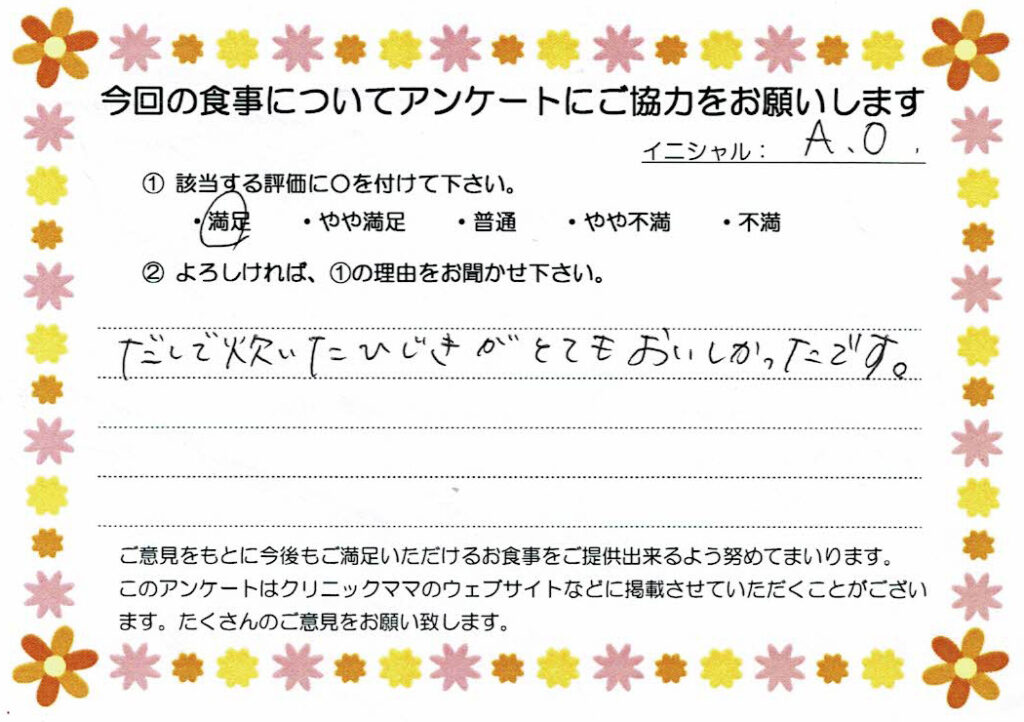 今回の食事についてアンケートにご協力をお願いします
イニシャル： A、O.
① 該当する評価に〇を付けて下さい。
・満足 ・やや満足 ・普通 ・やや不満 ・不満
② よろしければ、①の理由をお聞かせ下さい。
だしで炊いたひじきがとてもおいしかったです。
ご意見をもとに今後もご満足いただけるお食事をご提供出来るよう努めてまいります。
このアンケートはクリニックママのウェブサイトなどに掲載させていただくことがござい
ます。たくさんのご意見をお願い致します。